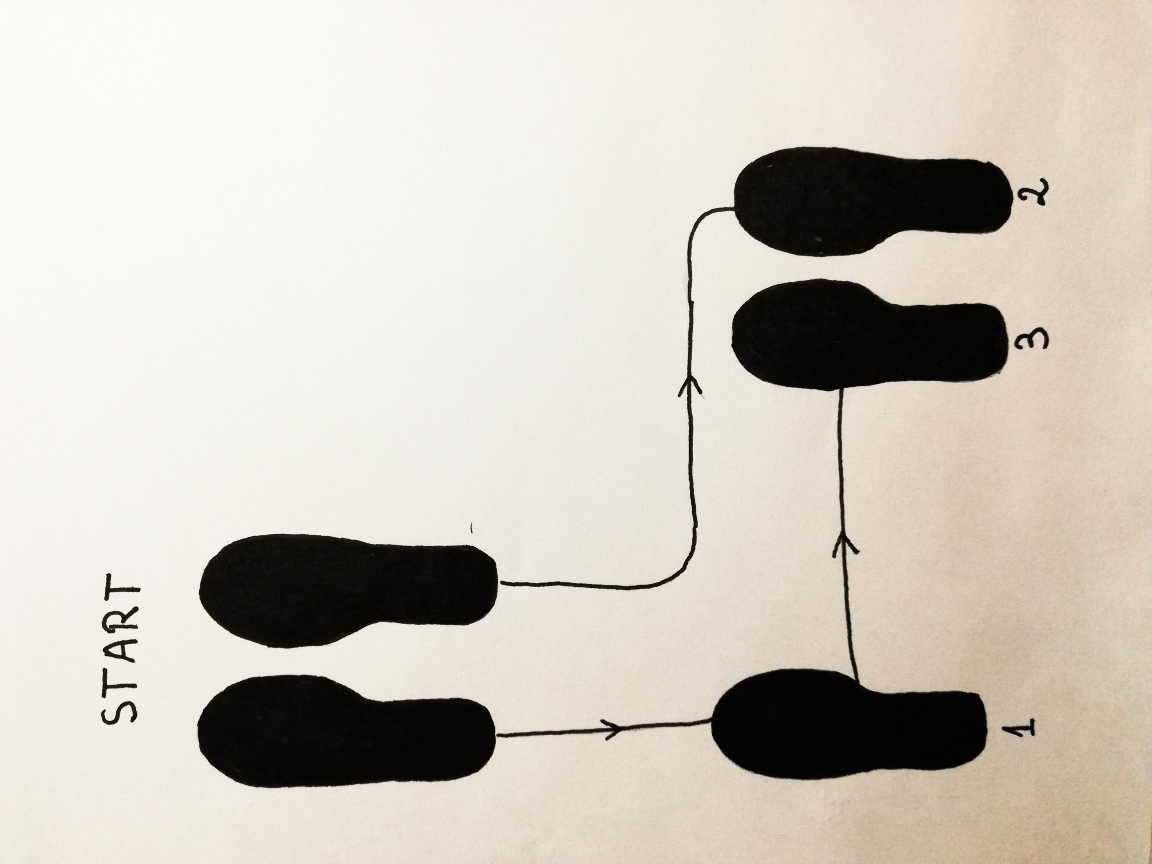 START
1
3
2